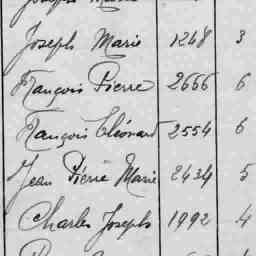 Joseph Marie 1248 3
François Pierre 2666 6
François Eléonard 2554 6
Jean Pierre Marie 2434 5
Charles Joseph 1992 4